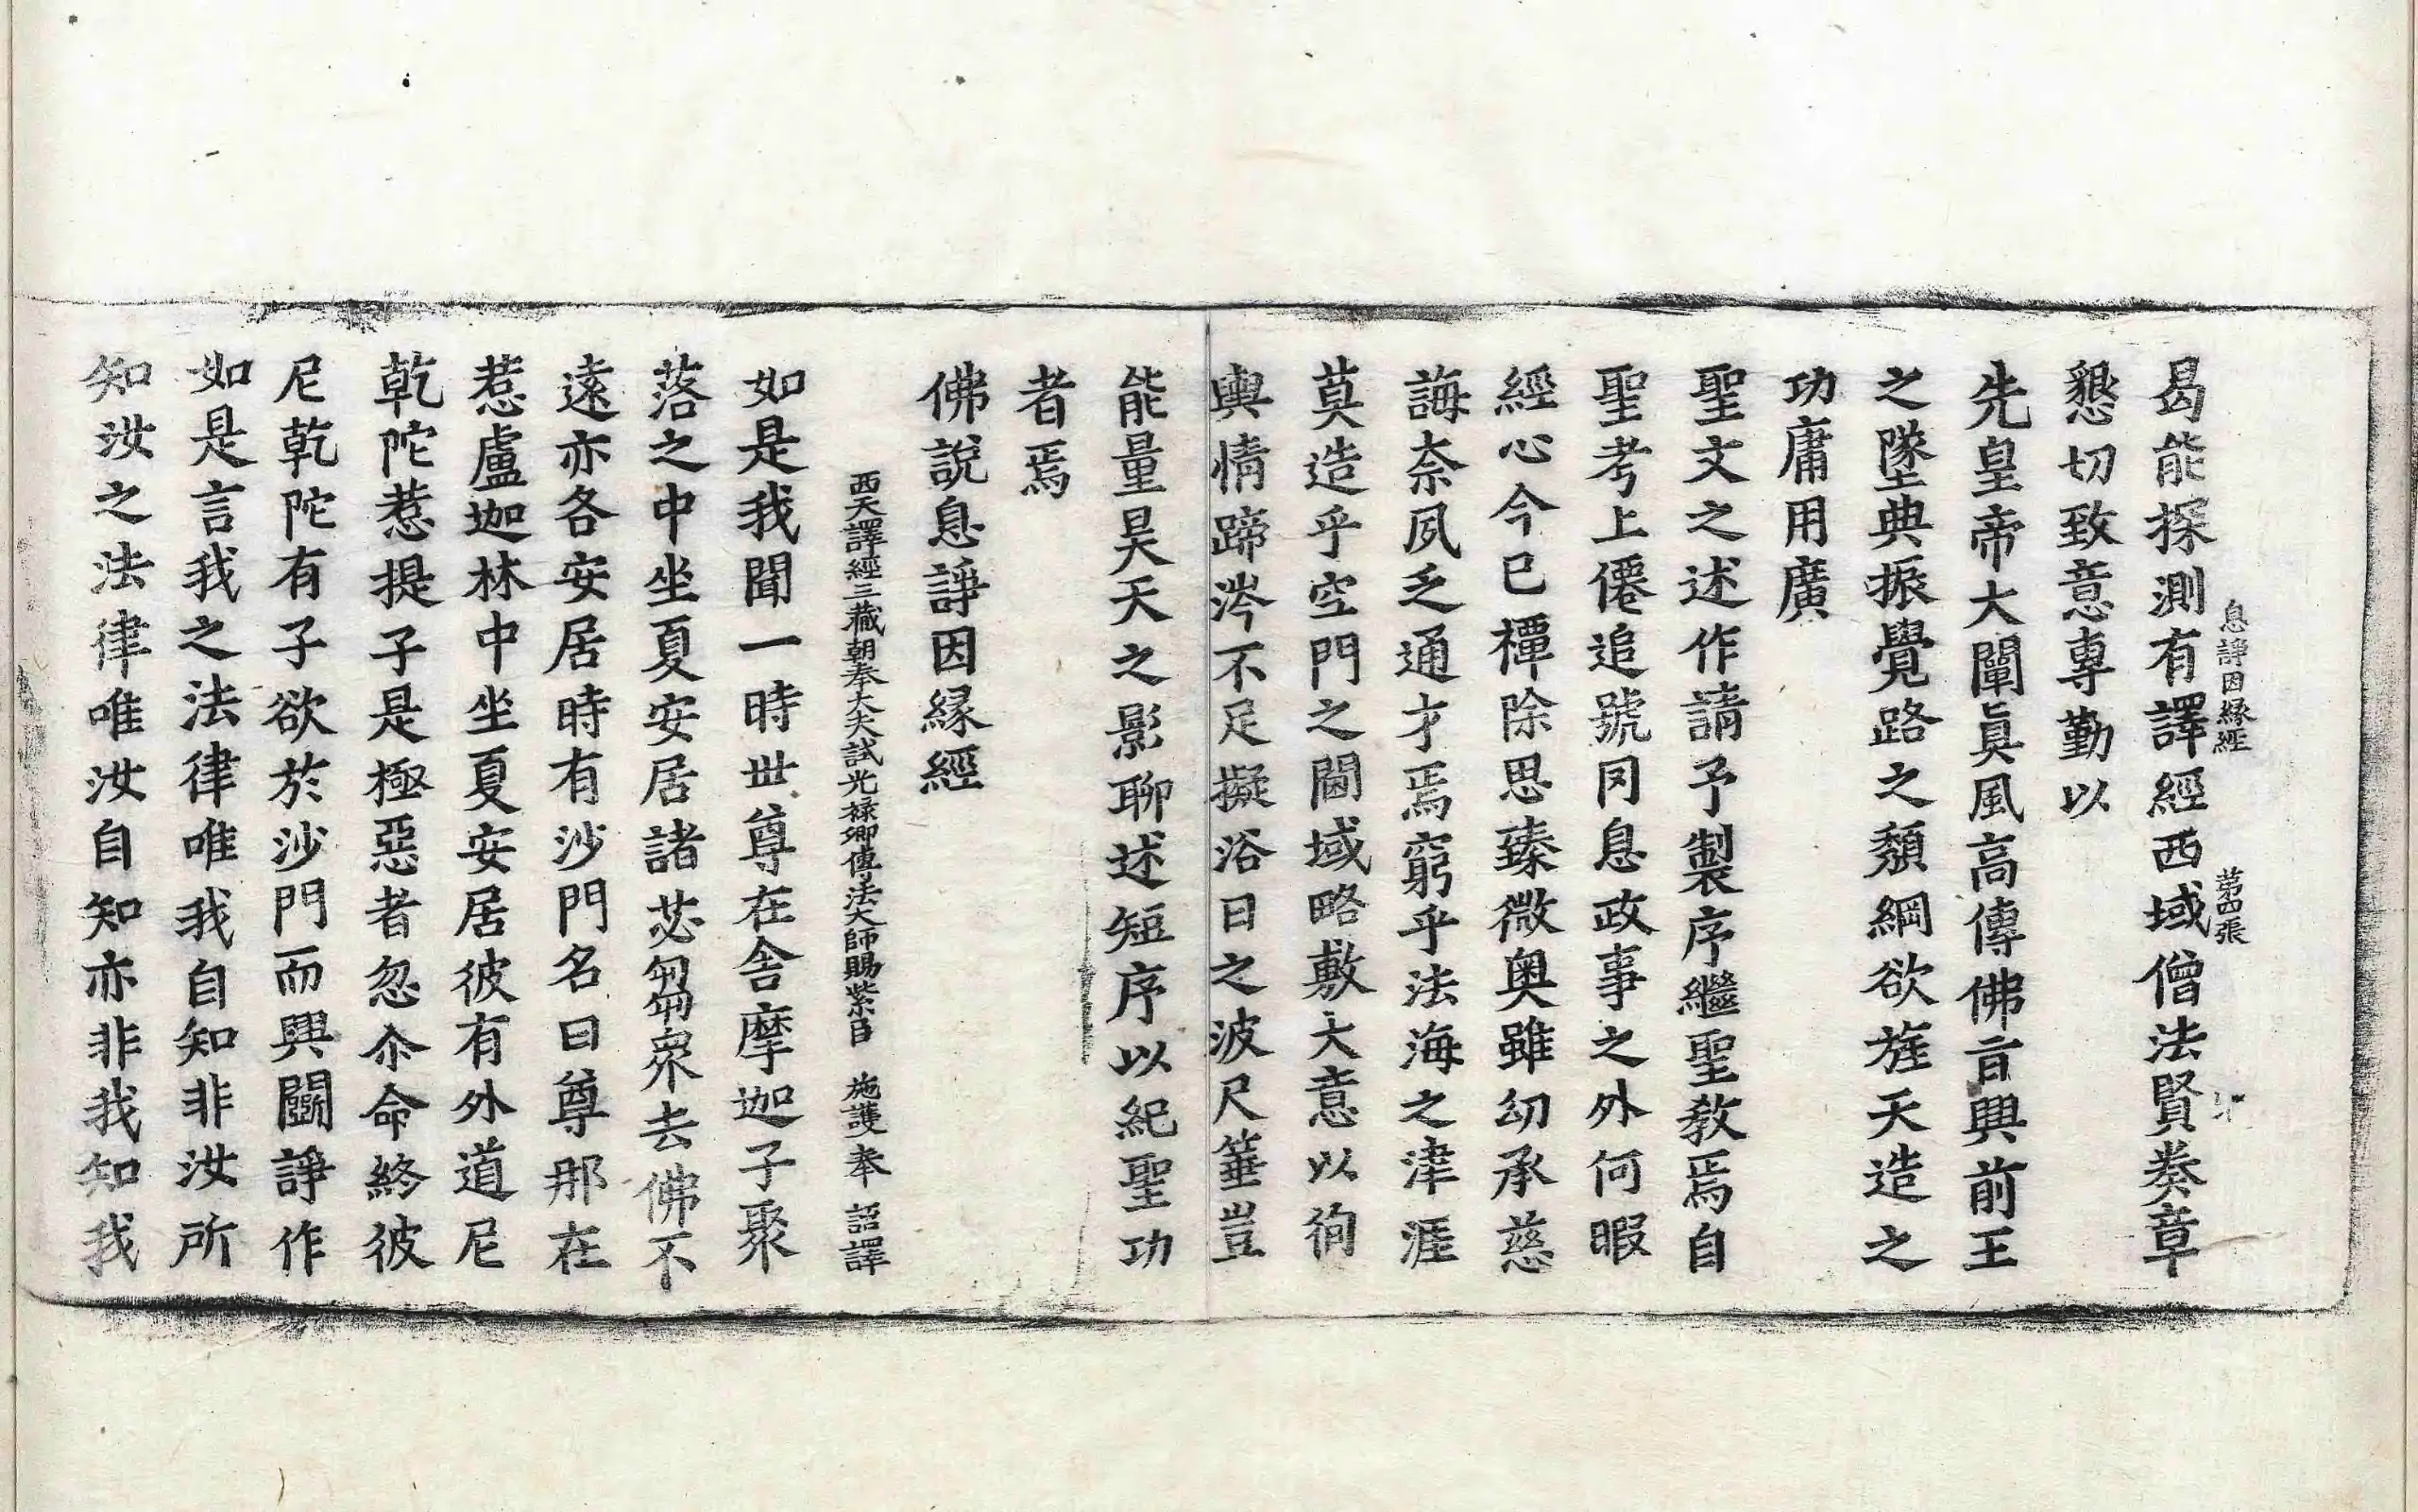 息諍因縁經 第四張
曷能探測有譯經西域僧法賢奏章
懇切致意專勤以
先皇帝大闡眞風高傳佛㫖興前王
之墜典振覺路之頹綱欲旌天造之
功庸用廣
聖文之述作請予製序繼聖教焉自
聖考上僊追號罔息政事之外何暇
經心今已禫除思臻微奥雖幼承慈
誨奈夙乏通才焉窮乎法海之津涯
莫造乎空門之閫域略敷大意以徇
輿情蹄涔不足擬浴日之波尺箠豈
能量昊天之影聊述短序以紀聖功
者焉
佛說息諍因縁經
西天譯經三藏朝奉大夫試光禄卿傳法大師賜紫臣 施護奉 詔譯
如是我聞一時世尊在舍摩迦子聚
落之中坐夏安居諸苾芻衆去佛不
遠亦各安居時有沙門名曰尊那在
惹盧迦林中坐夏安居彼有外道尼
乾陀惹提子是極惡者忽尒命終彼
尼乾陀有子欲於沙門而興鬬諍作
如是言我之法律唯我自知非汝所
知汝之法律唯汝自知亦非我知我